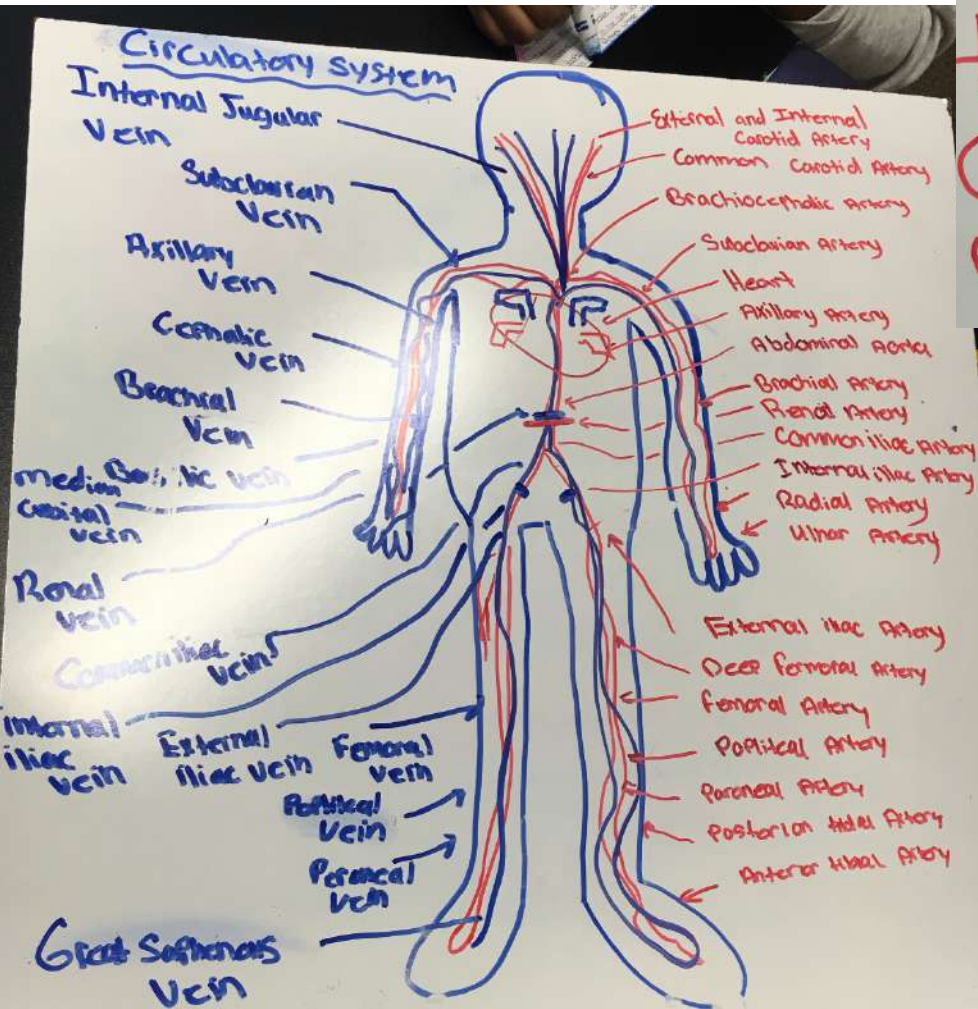 Circulatory system
Internal Jugular
Vein
Subclavian
Vein
Axillary
Vein
Cephalic
Vein
Brachial
Vein
Basilic vein
median
cubital
vein
Renal
vein
Common iliac
vein
internal
iliac
vein
External
iliac vein
Femoral
vein
Popliteal
vein
Peroneal
vein
Great
Vein
External and Internal
Carotid Artery
Common Carotid Artery
Brachiocephalic Artery
Subclavian Artery
Heart
Axillary Artery
Abdominal Aorta
Brachial Artery
Renal Artery
Common iliac Artery
Internal iliac Artery
Radial Artery
Ulnar Artery
External iliac Artery
Deep femoral Artery
femoral Artery
Popliteal Artery
Paroneal Artery
Posterior Artery
Anterior Artery